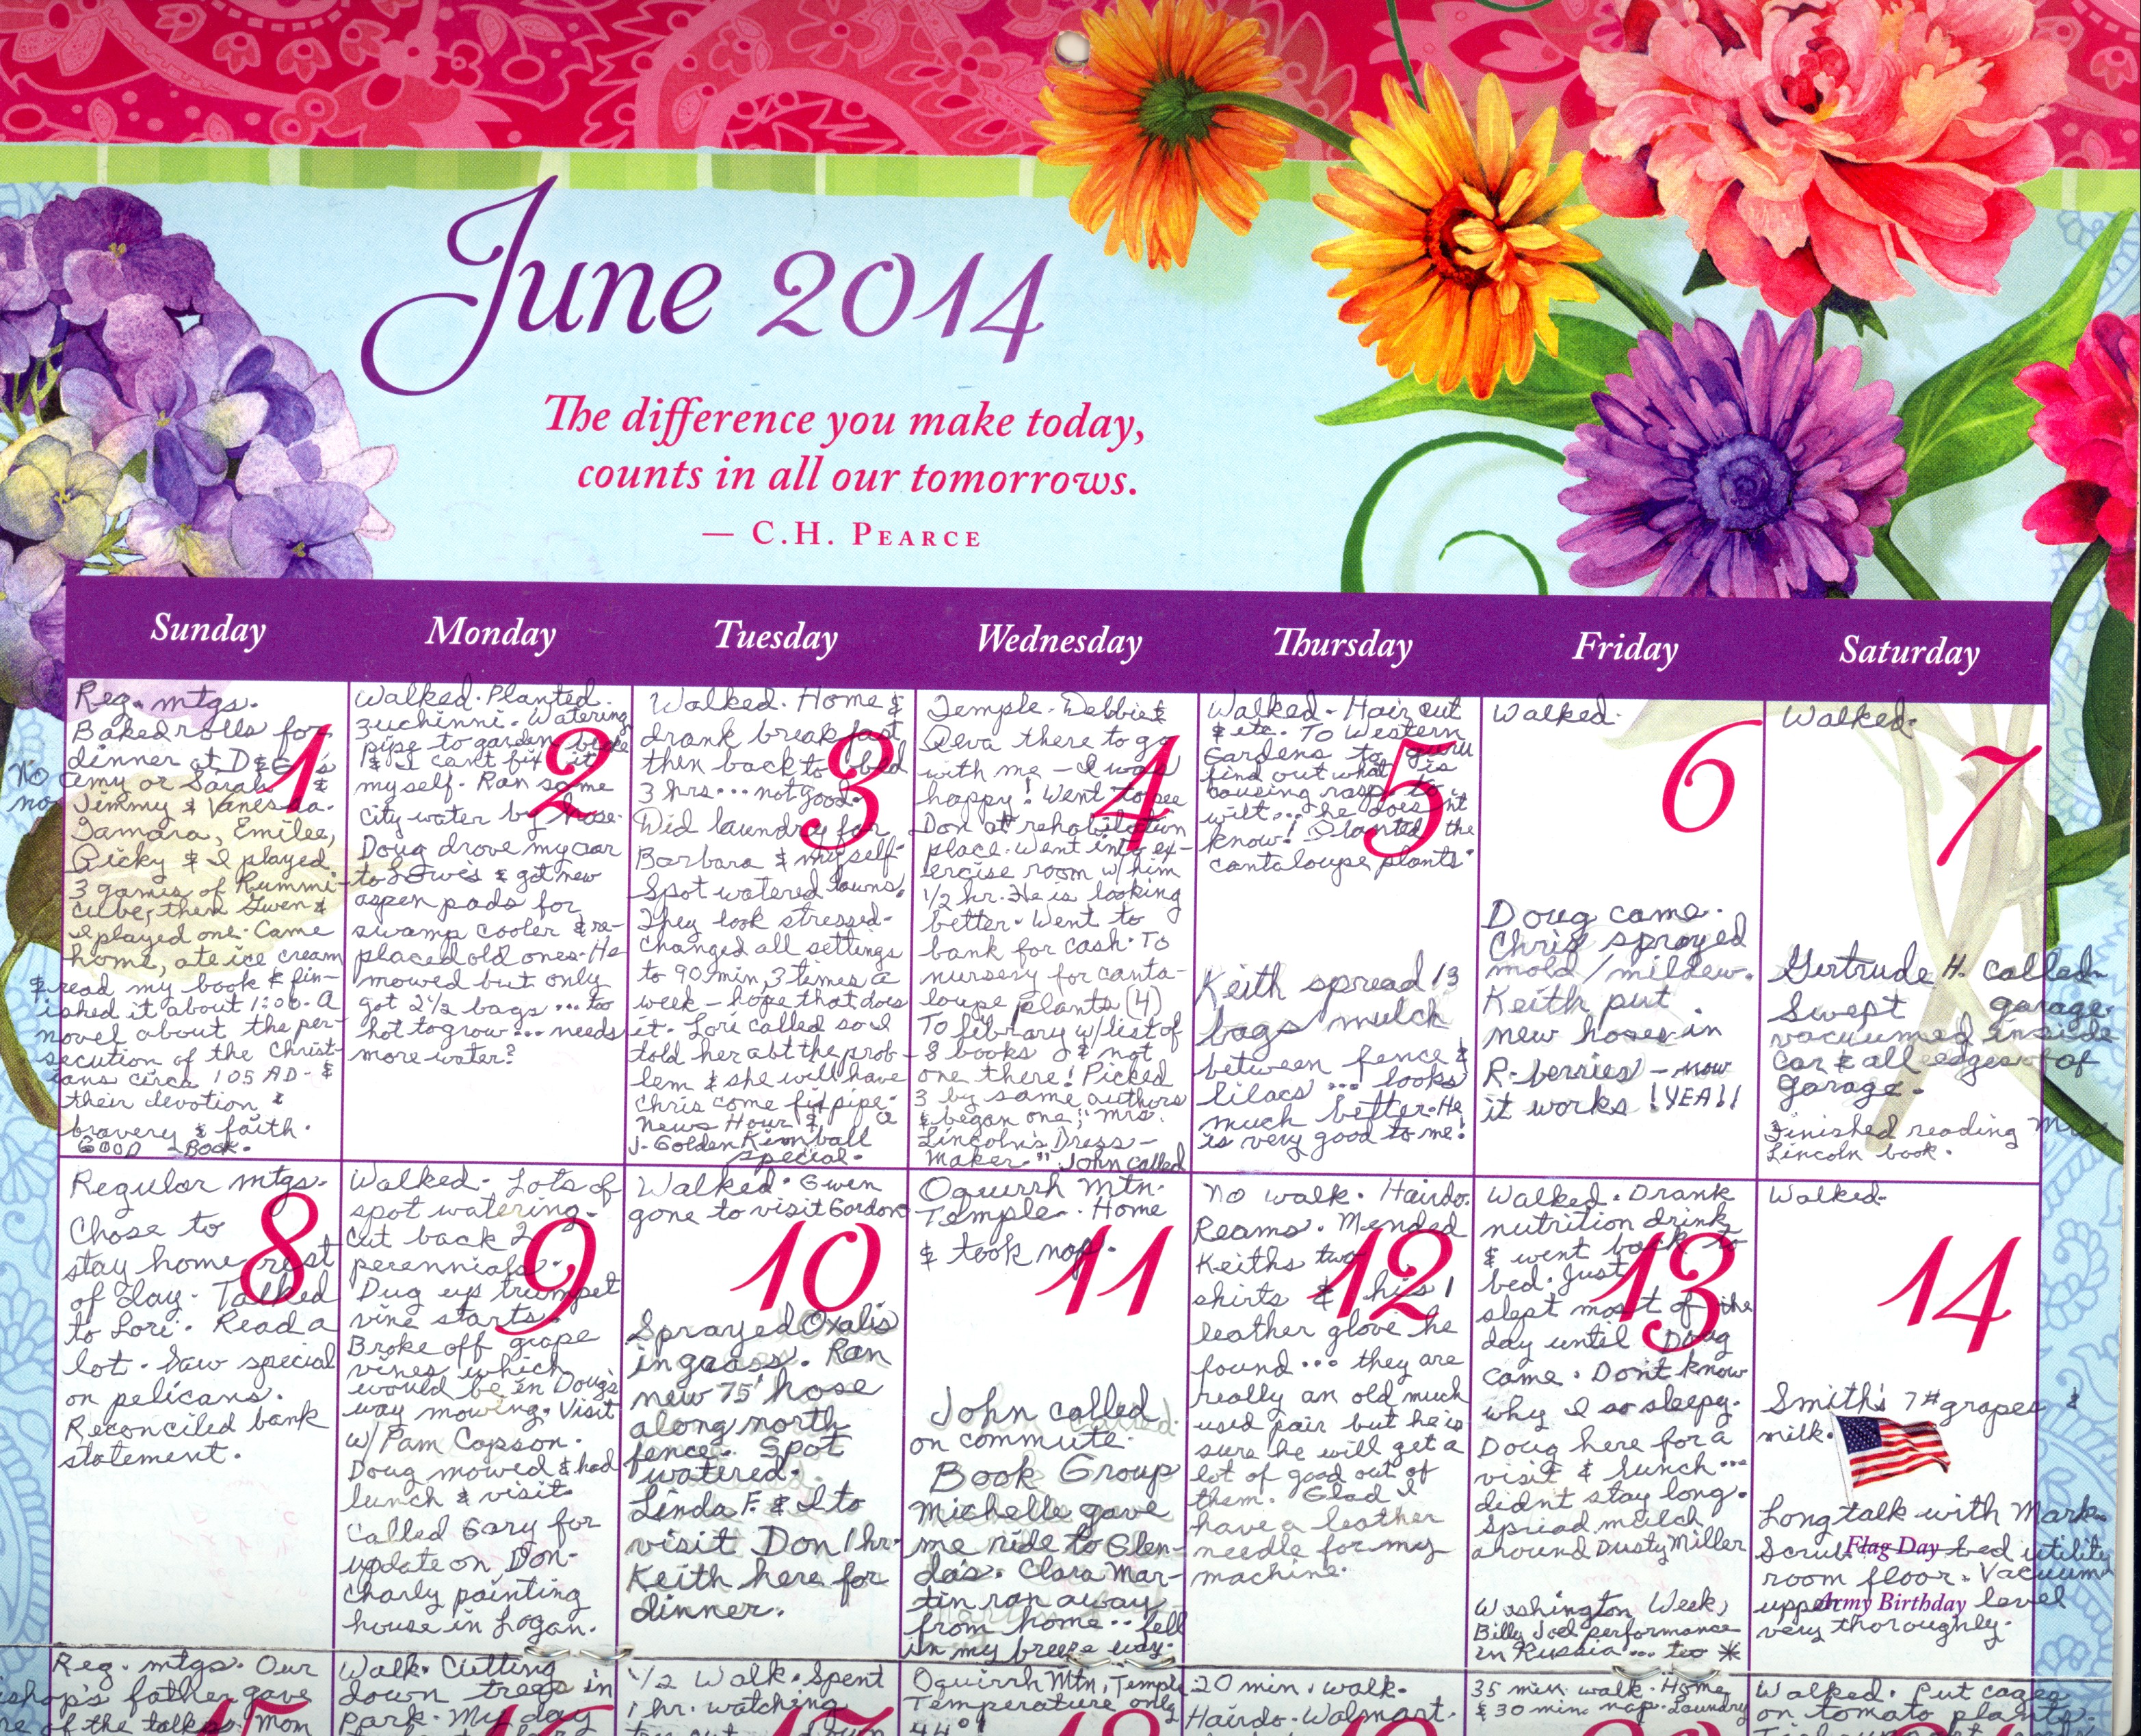 June 2014
The difference you make today,
counts in all our tomorrows.
— C.H. Pearce
Sunday Monday Tuesday Wednesday Thursday Friday Saturday
Reg. mtgs.
Baked rolls for
dinner at D & G's
No Amy or Sarah &
no Jimmy & Vanessa.
Tamara, Emilee,
Ricky & I played
3 games of Rummi-
cube, then Gwen &
I played one. Came
home, ate ice cream
& read my book & fin-
ished it about 1:00. A
novel about the per-
secution of the Christ-
ians circa 105 AD - &
their devotion &
bravery & faith.
GOOD - Book.
1
Walked. Planted
zuchinni. Watering
pipe to garden broke
& I can't fix it
myself. Ran some
city water by hose.
Doug drove my car
to Lowe's & got new
aspen pads for
swamp cooler & re-
placed old ones. He
mowed but only
got 2 1/2 bags ... too
hot to grow ... needs
more water?
2
Walked. Home &
drank breakfast
then back to bed
3 hrs... not good.
Did laundry for
Barbara & myself.
Spot watered lawns.
They look stressed.
Changed all settings
to 90 min, 3 times a
week - hope that does
it. Lori called so I
told her abt the prob-
lem & she will have
Chris come fix pipe.
News Hour & a
J. Golden Kimball
special.
3
Temple. Debbie &
Reva there to go
with me - I was
happy! Went to see
Don at rehabilation
place. Went into ex-
ercise room w/ him
1/2 hr. He is looking
better. Went to
bank for cash. To
nursery for canta-
loupe plants (4)
To library w/list of
8 books & not
one there! Picked
3 by same authors
& began one, "Mrs.
Lincoln's Dress-
maker" John called
4
Walked - Hair cut
& etc. To Western
Gardens to
find out what is
causing rasp to
wilt... he doesnt
know! Planted the
cantaloupe plants.
5
Keith spread 13
bags mulch
between fence &
lilacs ... looks
much better. He
is very good to me!
Walked.
6
Doug came.
Chris sprayed
mold/mildew.
Keith put
new hoses in
R-berries - now
it works! YEA!!
Walked.
7
Gertrude H. called
Swept garage.
vacuumed inside
car & all edges of
garage.
Finished reading Mrs
Lincoln book.
Regular mtgs.
Chose to
stay home rest
of day. Talked
to Lori. Read a
lot. Saw special
on pelicans.
Reconciled bank
statement.
8
Walked. Lots of
spot watering.
Cut back 2
perennials.
Dug up trumpet
vine starts.
Broke off grape
vines which
would be in Doug's
way mowing. Visit
w/ Pam Copson.
Doug mowed & had
lunch & visit.
Called Gary for
update on Don-
Charly painting
house in Logan.
9
Walked. Gwen
gone to visit Gordon
10
Sprayed Oxalis
in grass. Ran
new 75' hose
along north
fence. Spot
watered.
Linda F. & I to
visit Don 1 hr.
Keith here for
dinner.
Oquirrh Mtn.
Temple. Home
& took nap.
11
John called
on commute.
Book Group
Michelle gave
me ride to Glen-
da's. Clara Mar-
tin ran away
from home ... fell
in my breeze way.
No walk. Hairdo.
Reams. Mended
Keiths two
shirts & his 1
leather glove he
found ... they are
really an old much
used pair but he is
sure he will get a
lot of good out of
them. Glad I
have a leather
needle for my
machine.
12
Walked. Drank
nutrition drink
& went back to
bed. Just
slept most of the
day until Doug
came. Don't know
why I so sleepy.
Doug here for a
visit & lunch ...
didnt stay long.
Spread mulch
around Dusty Miller
13
Washington Week,
Billy Joel performance
in Russia ... too *
Walked.
14
Smith's 7# grapes &
milk.
Long talk with Mark.
Scrub bed utility
Flag Day
room floor. Vacuum
upper level
Army Birthday
very thoroughly.
Reg. mtgs. Our
bishop's father gave
one of the talks. Mom
15
Walk. Cutting
down trees in
park. My day
1/2 Walk. Spent
1 hr. watching
17
Oquirrh Mtn, Temple
Temperature only
44°!
18
20 min. walk.
Hairdo. Walmart.
35 min. walk. Home
& 30 min. nap. Laundry
20
Walked. Put cages
on tomato plants.